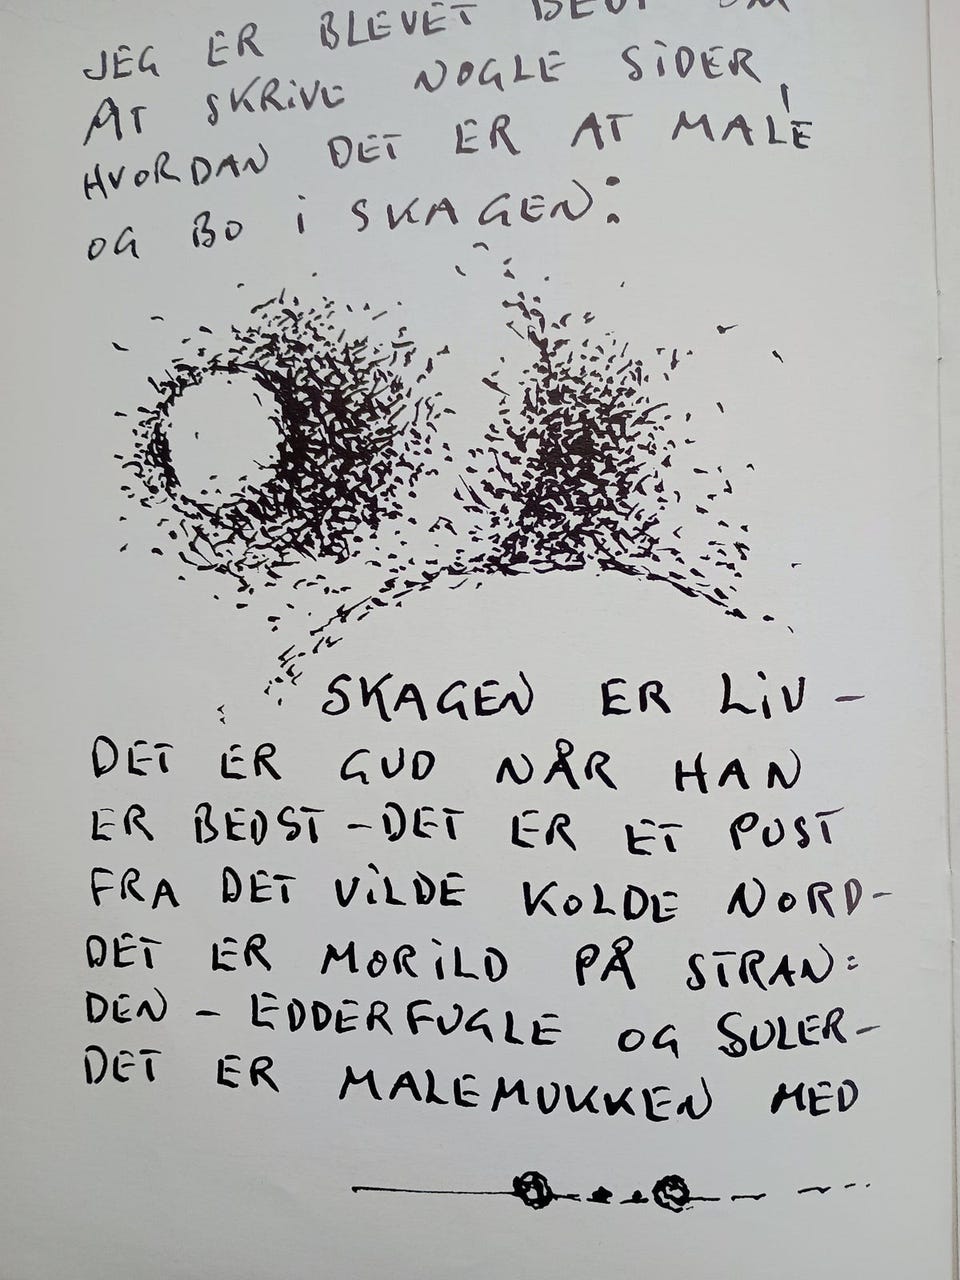 JEG ER BLEVET BEDT OM
AT SKRIVE NOGLE SIDER,
HVORDAN DET ER AT MALE
OG BO i SKAGEN:
SKAGEN ER LiV -
DET ER GUD NÅR HAN
ER BEDST - DET ER ET PUST
FRA DET ViLDE KOLDE NORD-
DET ER MORiLD PÅ STRAN=
DEN - EDDERFUGLE OG SULER-
DET ER MALEMUKKEN MED